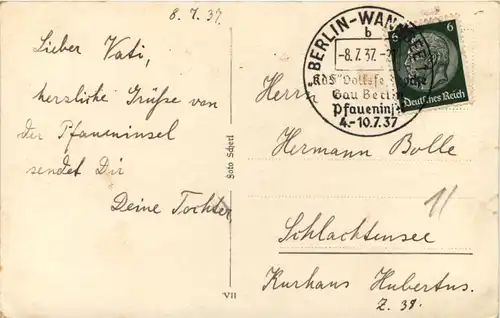 8. 7. 37.
Lieber Vati,
herzliche Grüße von
der Pfaueninsel
sendet Dir
Deine Tochter
Foto Scherl
VII
BERLIN-WANNSEE
b
-8.7.37.
"KdF" Volksfe
Gau Berlin
Pfaueninsel
4.-10.7.37
6
Deutsches Reich
Herrn
Hermann Bolle
Schlachtensee
Kurhaus Hubertus.
Z. 38.